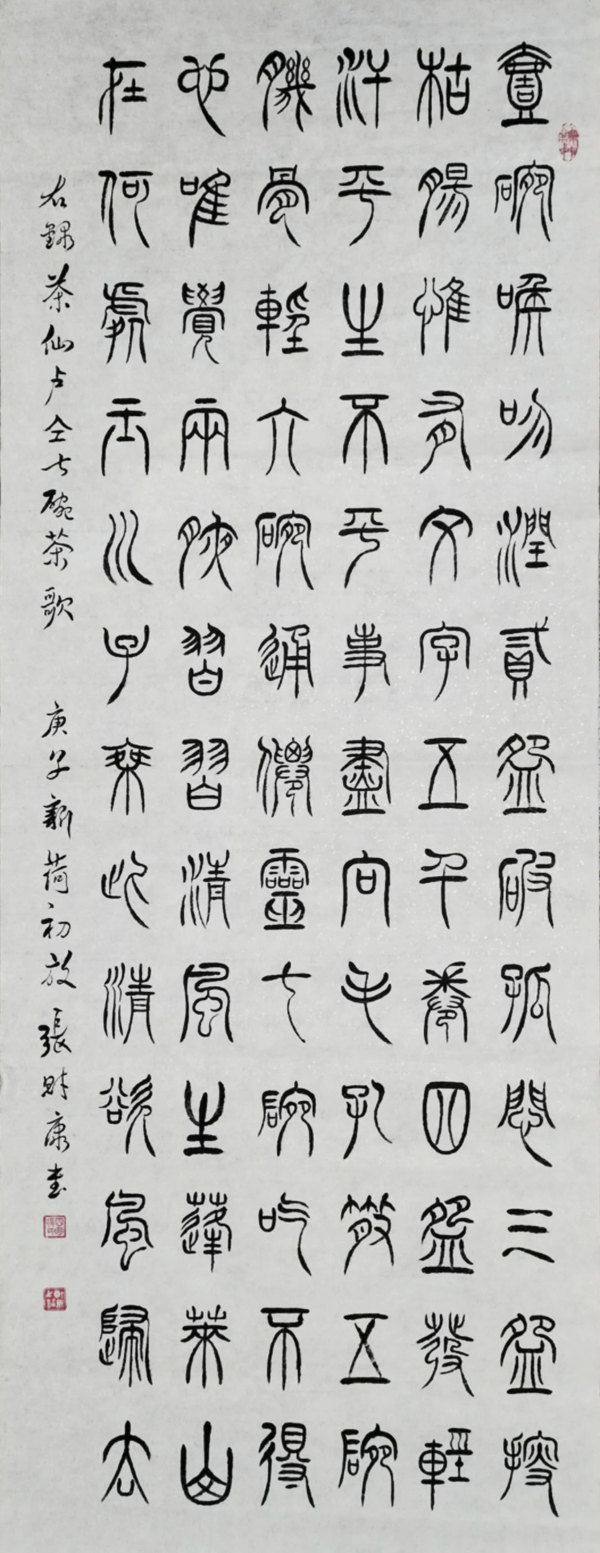 壹碗喉吻潤貳盌破孤悶三盌搜
枯腸惟有文字五千卷四盌發輕
汗平生不平事盡向毛孔散五碗
肌骨輕六碗通僊靈七碗吃不得
也唯覺兩腋習習清風生蓬萊山
在何處玉川子乘此清欲風歸去
右録茶仙卢仝七碗茶歌 庚子新荷初放 張財康书